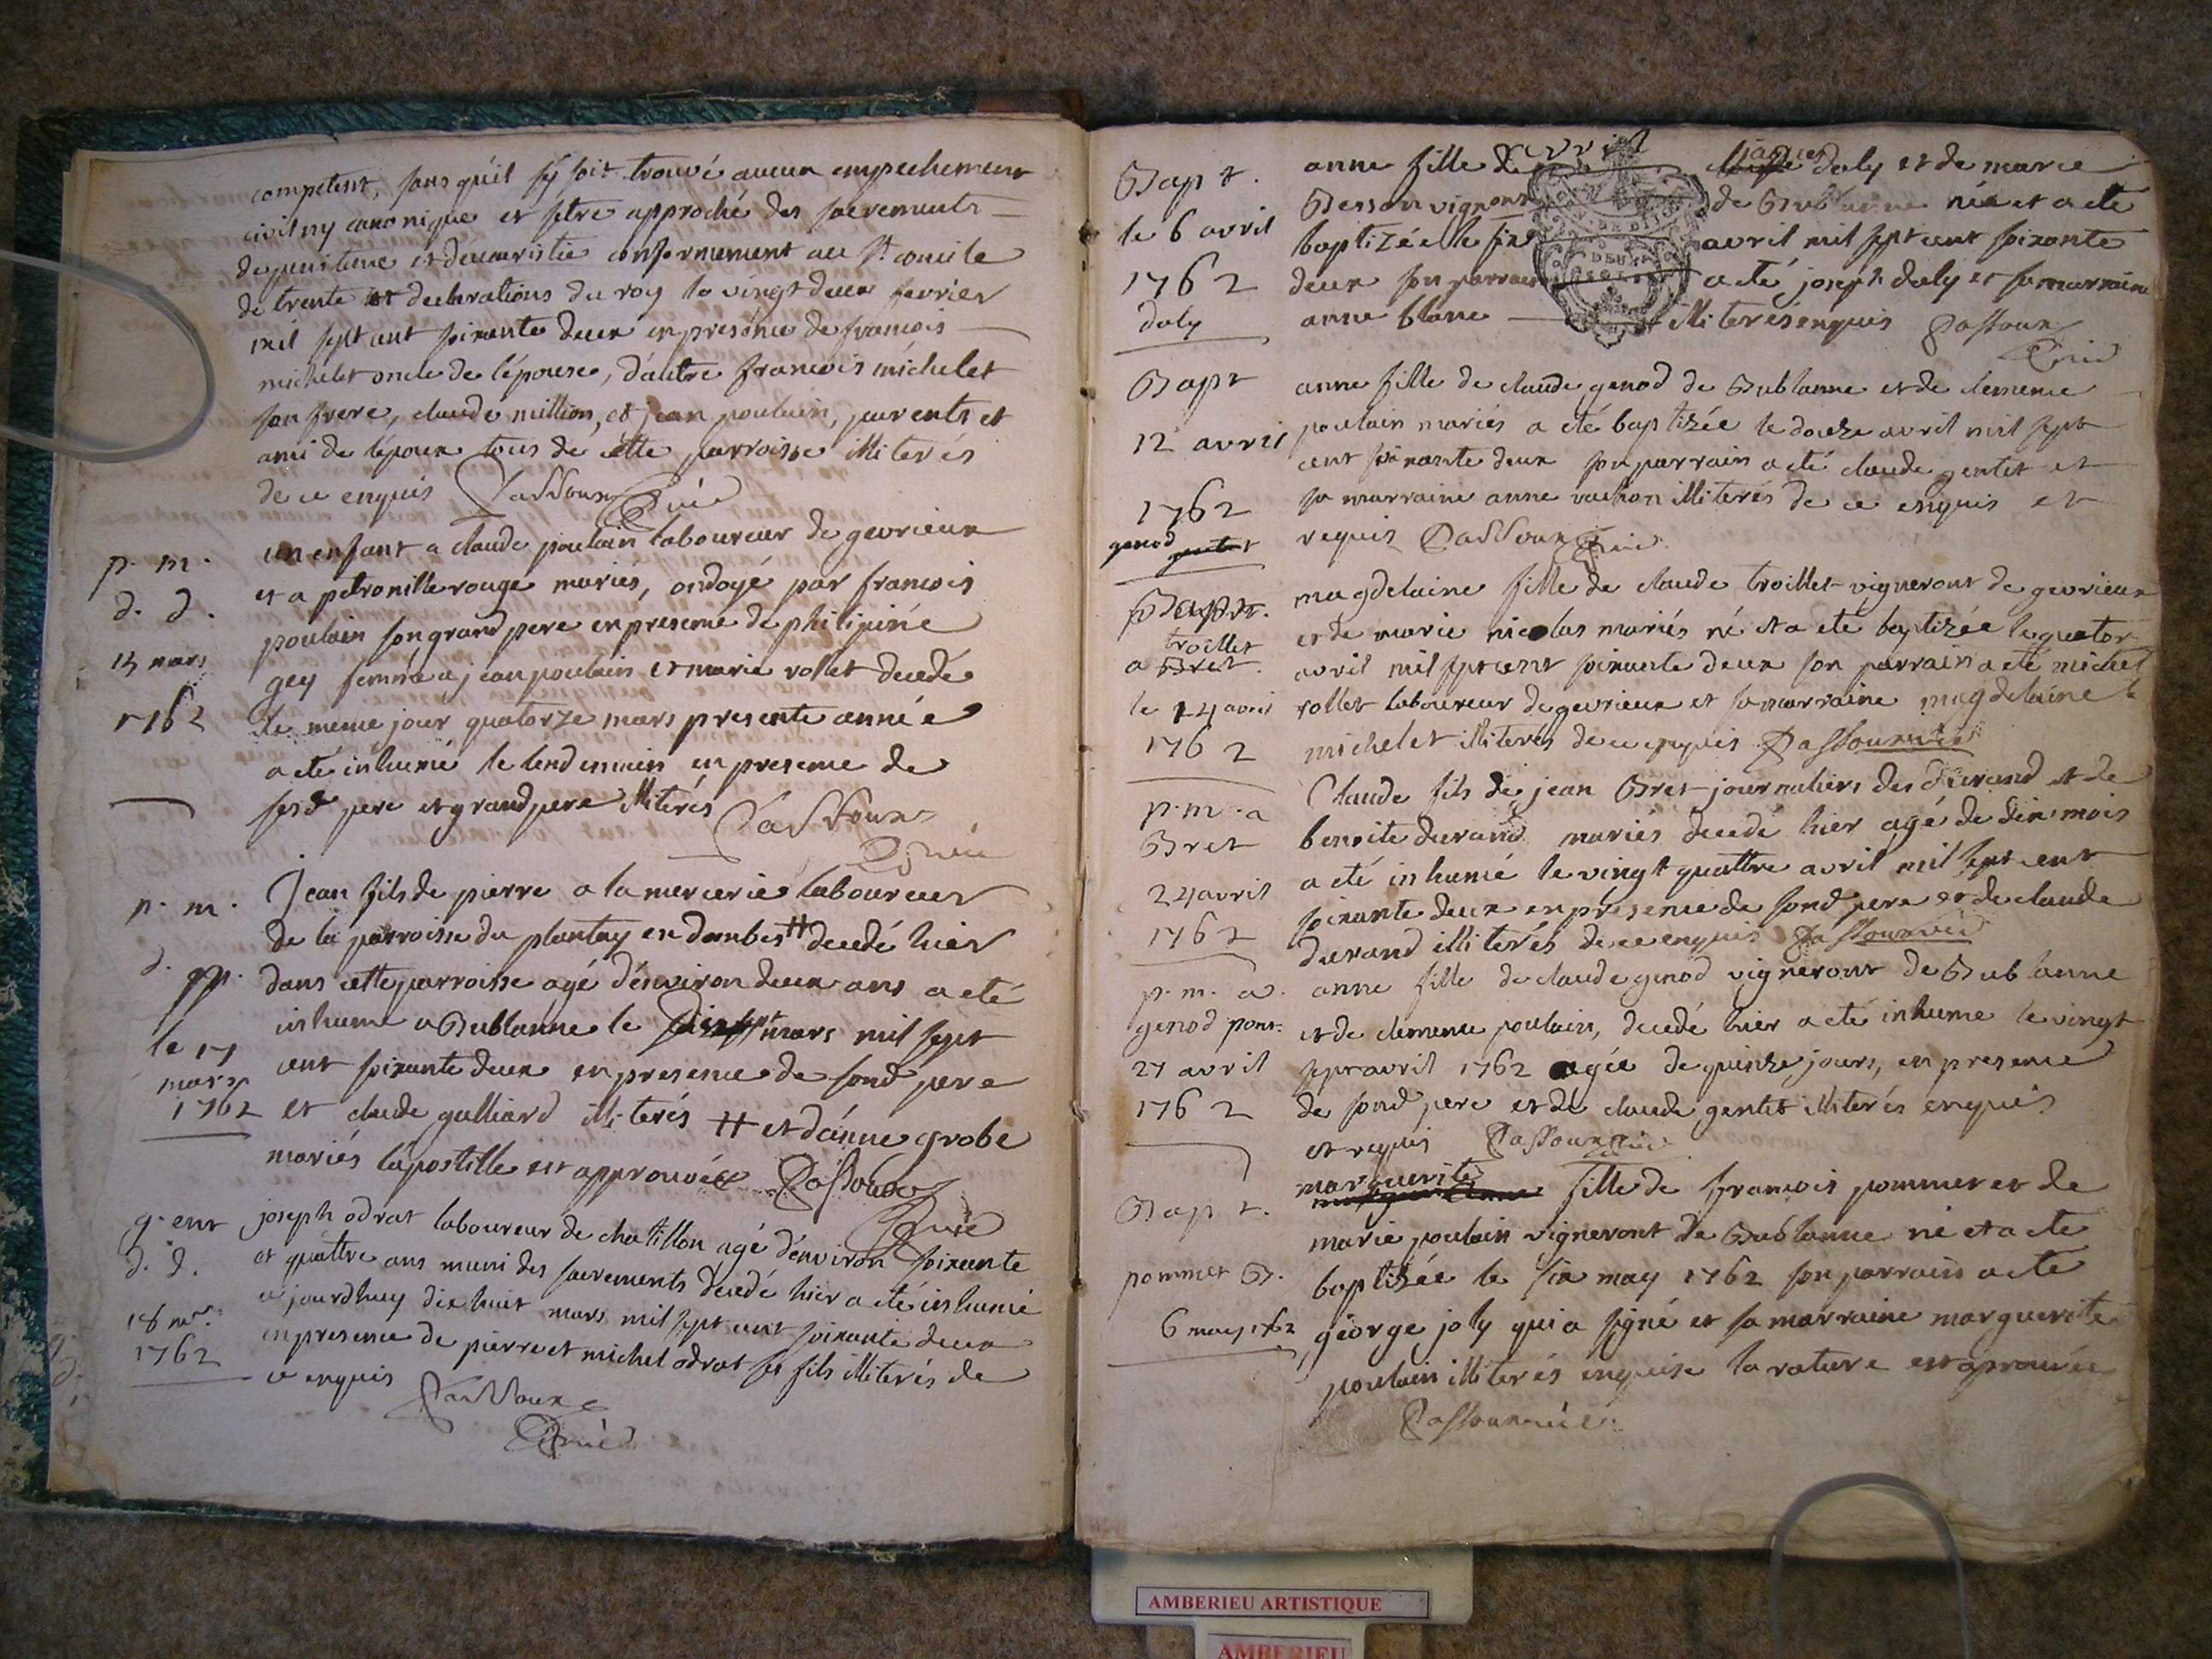 competent, sans qu'il s'y soit trouvé aucun empechement
civil ny canonique et s'etre approché des sacrements
de penitence et d'eucaristie conformement au St concile
de trente et declarations du roy le vingt deux fevrier
mil sept cent soixante deux en presence de francois
michelet oncle de l'épouse, d'autre francois michelet
son frere, claude million, et jean poulain, parents et
ami de l'époux tous de cette parroisse illiterés
de ce enquis Passoux Curé
p. m.
d. d.
13 mars
1762
un enfant a claude poulain laboureur de gevrieux
et a petronille rouge mariés, ondoyé par francois
poulain son grand pere en presence de philipine
gey femme a jean poulain et marie rollet decedé
le meme jour quatorze mars presente année
a eté inhumé le lendemain en presence de
sesd pere et grand pere illiterés Passoux
Curé
p. m.
d.
le 17
mars
1762
Jean fils de pierre a la mercerie laboureur
de la parroisse du plantay en dombes # decedé hier
dans cette parroisse agé d'environ deux ans a eté
inhumé a Bublanne le dix sept mars mil sept
cent soixante deux en presence de sond pere
et claude galliard illiterés # et d'anne grobe
mariés l'apostille est approuvée Passoux
Curé
g. ent
d. d.
18 mrs
1762
joseph odrat laboureur de chatillon agé d'environ soixante
et quattre ans muni des sacrements decedé hier a eté inhumé
ce jourdhuy dix huit mars mil sept cent soixante deux
en presence de pierre et michel odrat ses fils illiterés de
ce enquis Passoux
Curé
Bapt.
le 6 avril
1762
daly
anne fille de jaques daly et de marie
Besson vignerons de Bublanne née et a eté
baptizée le six avril mil sept cent soixante
deux son parrain a eté joseph daly et sa marraine
anne blanc illiterés enquis Passoux
Curé
Bapt
12 avril
1762
genod
anne fille de claude genod de Bublanne et de clemence
poulain mariés a eté baptizée le douze avril mil sept
cent soixante deux son parrain a eté claude gentet et
sa marraine anne vachon illiterés de ce enquis et
requis Passoux Curé
Bapt.
troillet
a Bret.
le 14 avril
1762
magdelaine fille de claude troillet vigneront de gevrieux
et de marie nicolas mariés né et a eté baptizée le quator
avril mil sept cent soixante deux son parrain a eté michel
rollet laboureur de gevrieux et sa marraine magdelaine
michelet illiterés de ce enquis Passoux curé
p. m. a
Bret
24 avril
1762
Claude fils de jean Bret journaliers des durand et de
benoite durand mariés decedé hier agé de dix mois
a eté inhumé le vingt quattre avril mil sept cent
soixante deux en presence de sond pere et de claude
durand illiterés de ce enquis Passoux curé
p. m. a.
genod pont.
27 avril
1762
anne fille de claude genod vigneront de Bublanne
et de clemence poulain, decedé hier a eté inhumé le vingt
sept avril 1762 agée de quinze jours, en presence
de sond pere et de claude gentet illiterés enquis
et requis Passoux Curé
Bapt.
pommer B.
6 may 1762
marguerite fille de francois pommer et de
marie poulain vigneront de Bublanne né et a eté
baptizée le six may 1762 son parrain a eté
george joly qui a signé et sa marraine marguerite
poulain illiterés enquise la rature est aprouvée
Passoux curé
AMBERIEU ARTISTIQUE
AMBERIEU